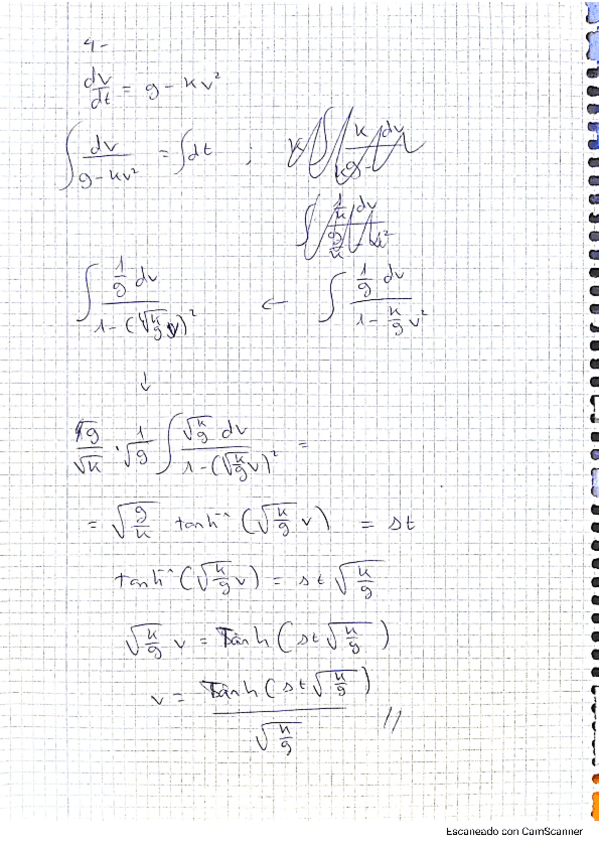 4-
dv/dt = g - kv²
∫ dv/(g - kv²) = ∫dt ;
∫ (1/g dv)/(1 - (√(k/g) v)²) ← ∫ (1/g dv)/(1 - k/g v²)
↓
√g/√k · 1/g ∫ (√(k/g) dv)/(1 - (√(k/g) v)²) =
= √(g/k) tanh⁻¹ (√(k/g) v) = st
tanh⁻¹ (√(k/g) v) = st √(k/g)
√(k/g) v = Tanh (st √(k/g))
v = Tanh (st √(k/g)) / √(k/g) //
Escaneado con CamScanner